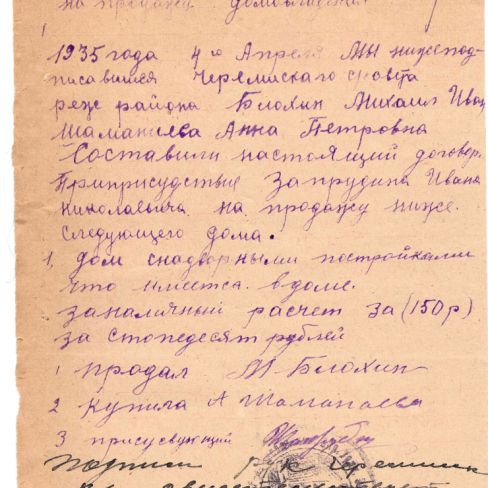 на продажу домовладения
1935 года 4го Апреля Мы нижепод-
писавшиеся Черемисского совета
реж района Блохин Михаил Иван
Шаманаева Анна Петровна
Составили настоящий договор.
Приприсудствие Запрудина Ивана
Николаевича на продажу ниже.
следующего дома.
1, дом снадворными постройками
что имеетса вдоме.
заналичный расчет за (150 р)
за стопедесят рублей
1 продал М-Блохин
2 купила А Шаманаева
3 присувующий
Подписи